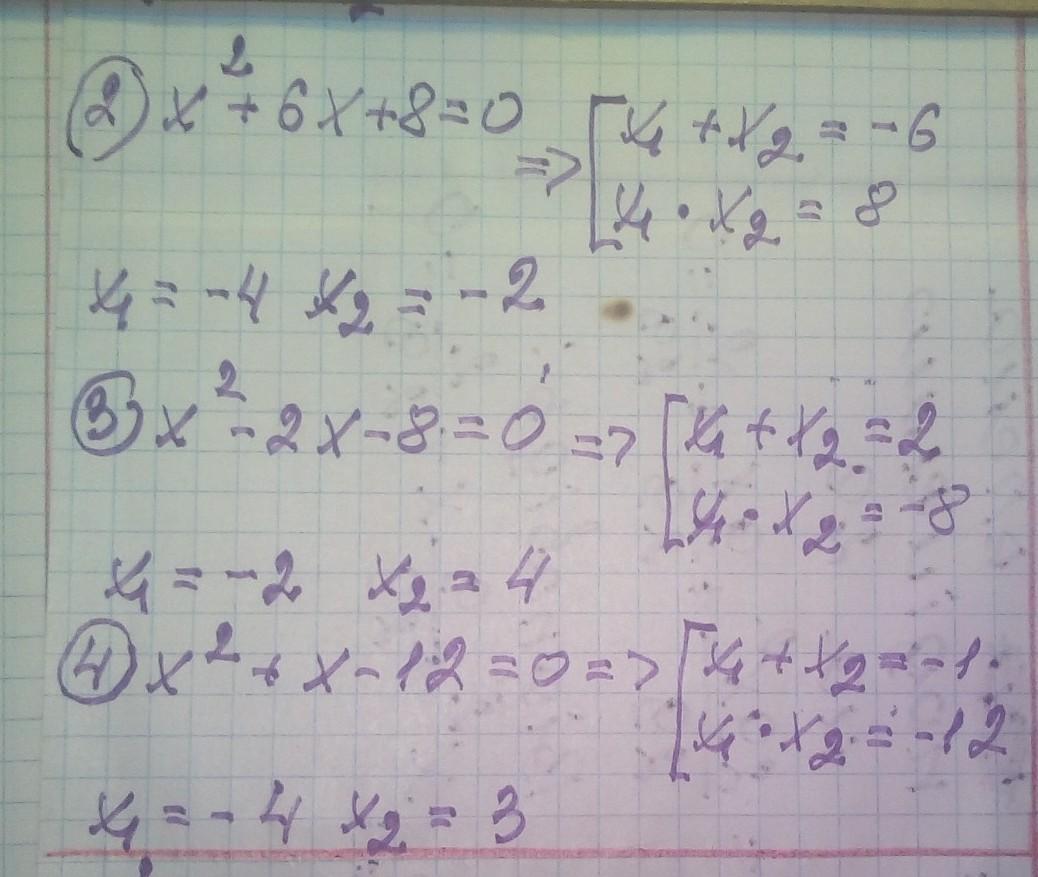 ② x² + 6x + 8 = 0 => [ x₁ + x₂ = -6
x₁ · x₂ = 8
x₁ = -4 x₂ = -2
③ x² - 2x - 8 = 0 => [ x₁ + x₂ = 2
x₁ · x₂ = -8
x₁ = -2 x₂ = 4
④ x² + x - 12 = 0 => [ x₁ + x₂ = -1
x₁ · x₂ = -12
x₁ = -4 x₂ = 3